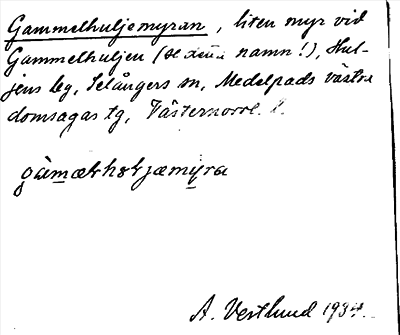 Gammelhuljemyran, liten myr vid
Gammelhuljen (se namn!), Hul-
jens bg, Selångers sn, Medelpads västra
domsagas tg, Västernorrl. l.
A. Vestlund 1934.